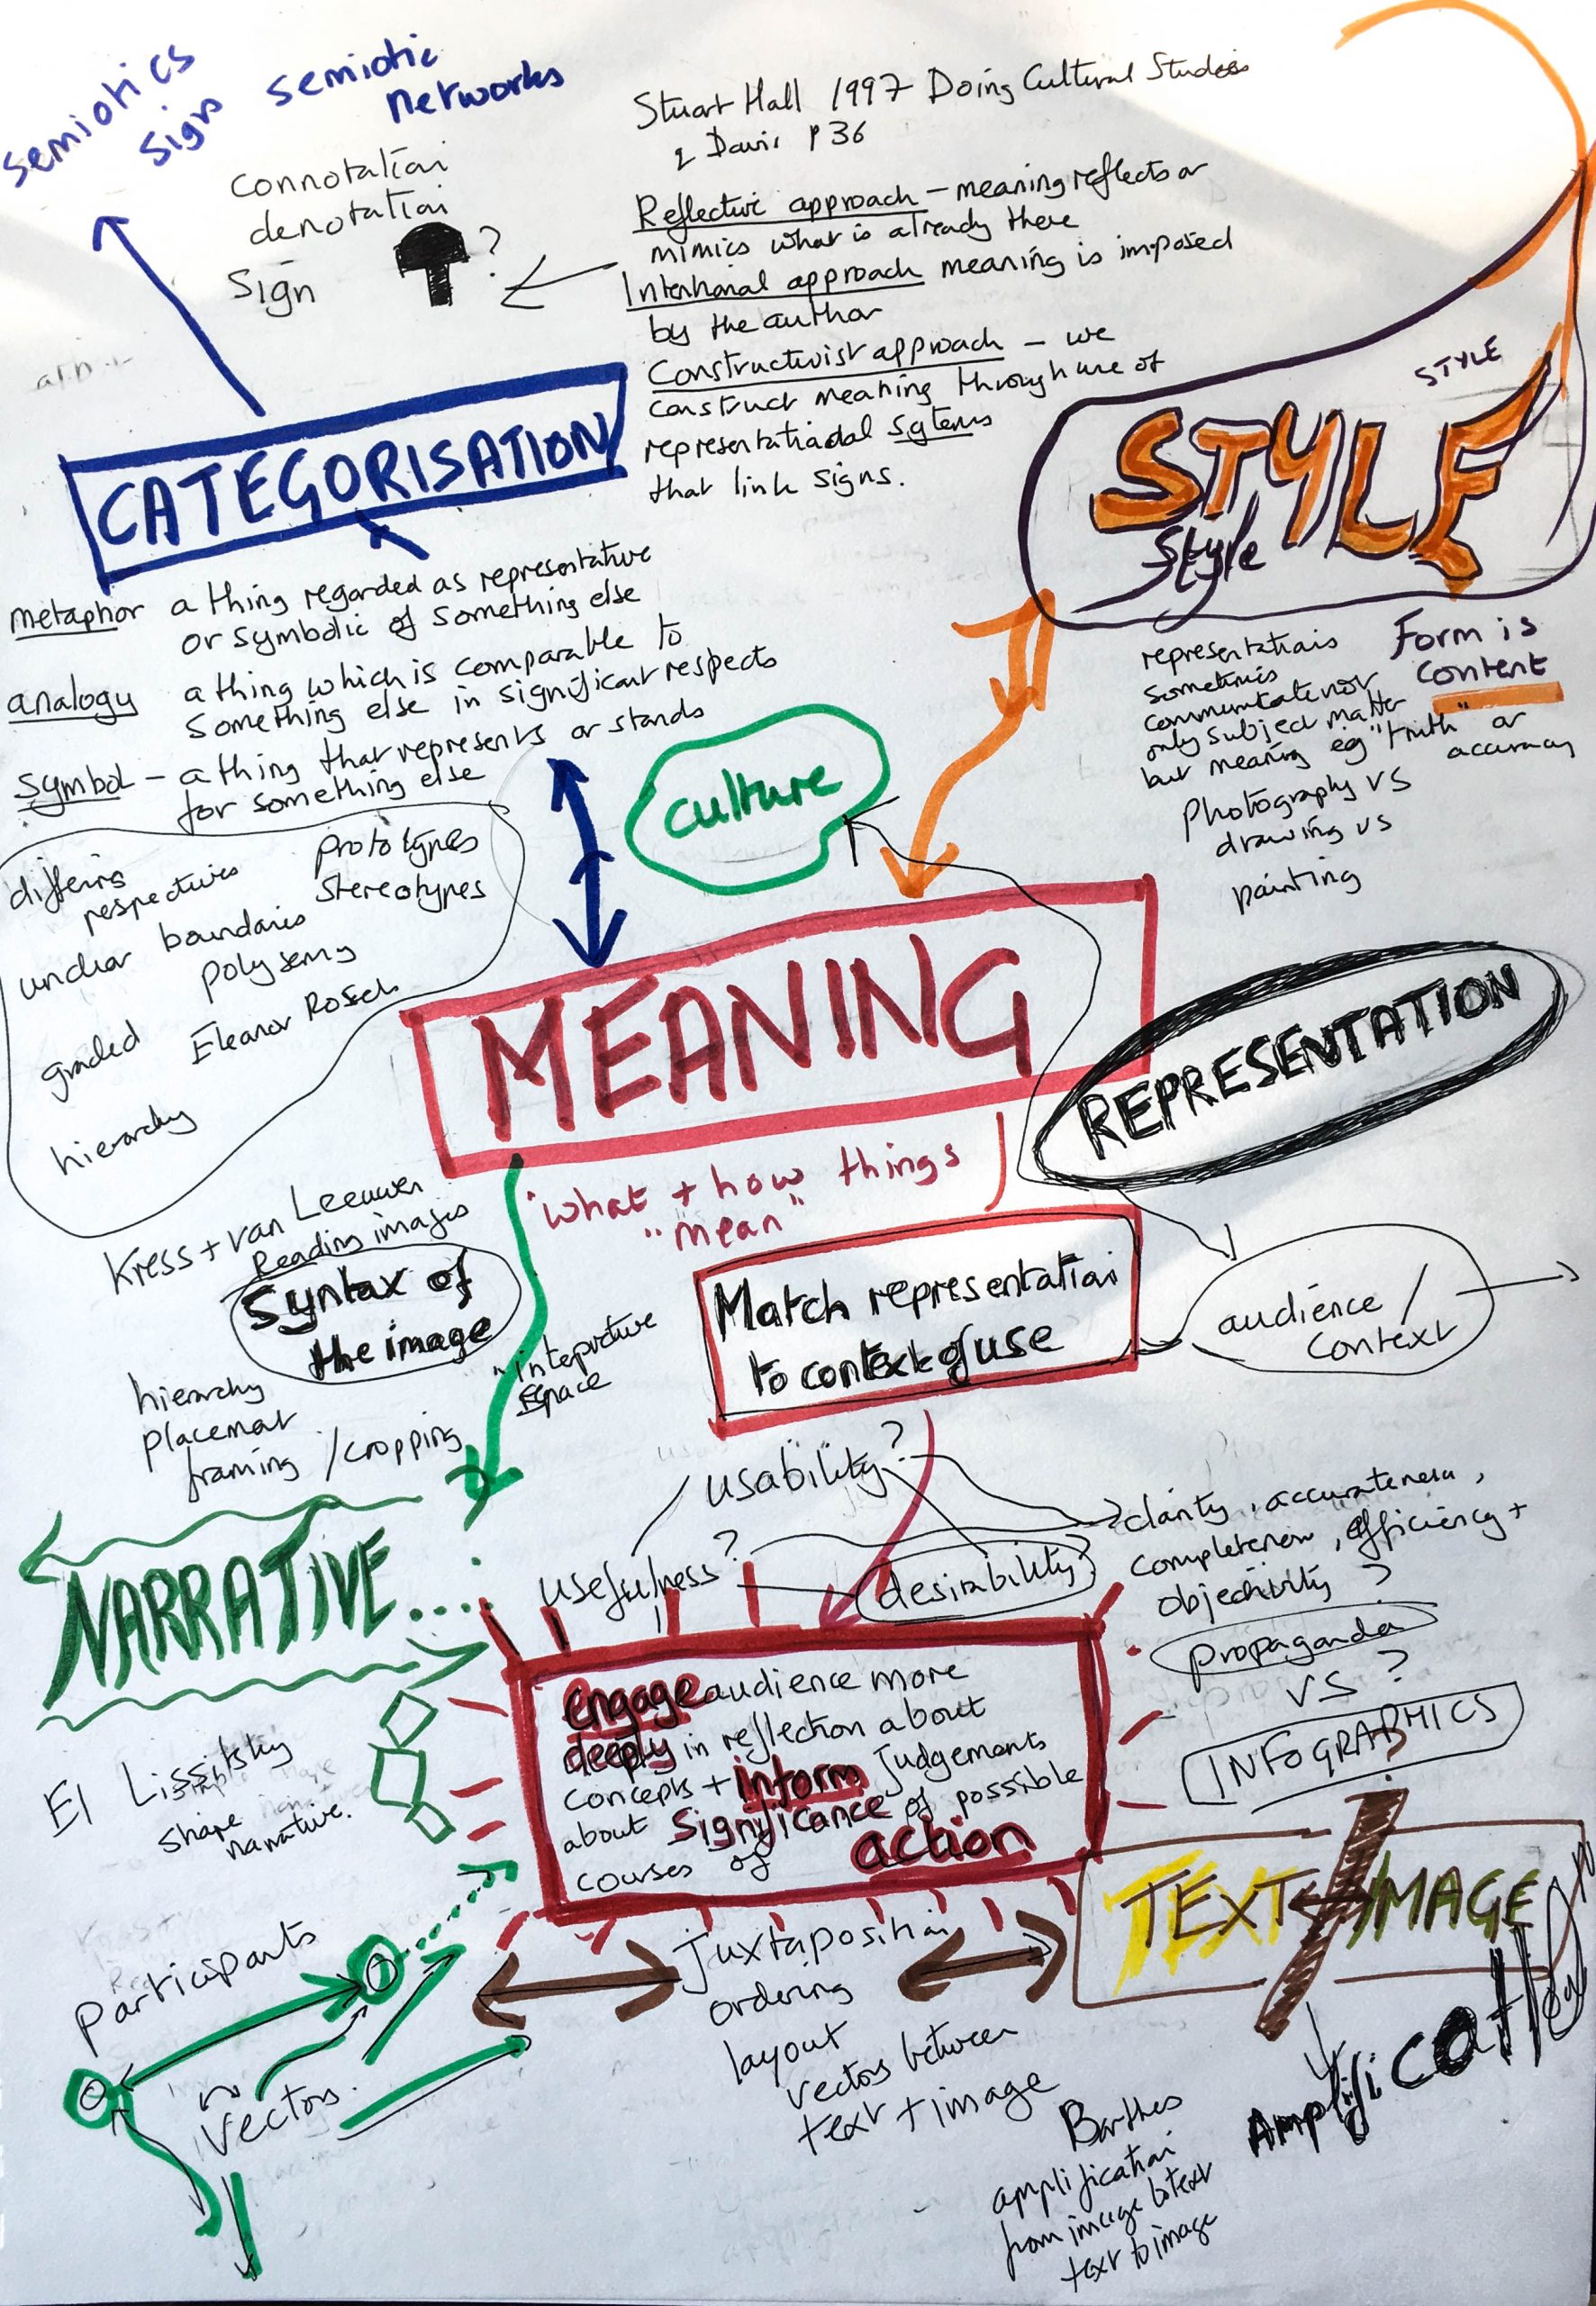 semiotics
sign
semiotic
networks
connotation
denotation
sign
?
Stuart Hall 1997 Doing Cultural Studies
& Davis p 36
Reflective approach – meaning reflects or
mimics what is already there
Intentional approach meaning is imposed
by the author
Constructivist approach – we
construct meaning through use of
systems
that link signs.
CATEGORISATION
STYLE
STYLE
Style
metaphor a thing regarded as representative
or symbolic of something else
analogy a thing which is comparable to
something else in significant respects
symbol – a thing that represents or stands
for something else
representations
sometimes
communicate not
only subject matter
but meaning eg "truth" or
accuracy
Form is
content
Photography vs
drawing vs
painting
culture
prototypes
stereotypes
unclear boundaries
polysemy
graded
Eleanor Rosch
hierarchy
MEANING
REPRESENTATION
what + how things
"mean"
Kress + van Leeuwen
Reading images
Syntax of
the image
hierarchy
placement
framing / cropping
space
Match representation
to context of use
audience /
context
usability?
usefulness?
desirability?
clarity, accurateness,
completeness, efficiency +
objectivity?
propaganda
vs ?
INFOGRAPHICS
?
NARRATIVE....
El Lissitsky
shape
narrative.
engage audience more
deeply in reflection about
concepts + inform judgements
about significance of possible
courses of action
TEXT IMAGE
Amplification
participants
vectors.
juxtaposition
ordering
layout
vectors between
text + image
Barthes
amplification
from image to text
text to image